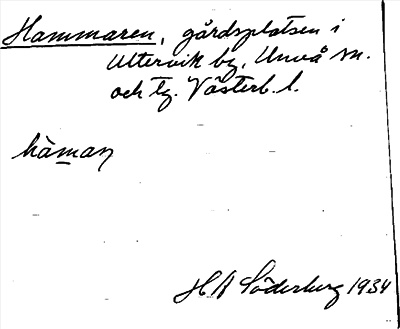 Hammaren, gårdsplatsen i
Ultervik by, Umeå sn.
och tg. Västerb. l.
hàman
H A Söderberg 1934